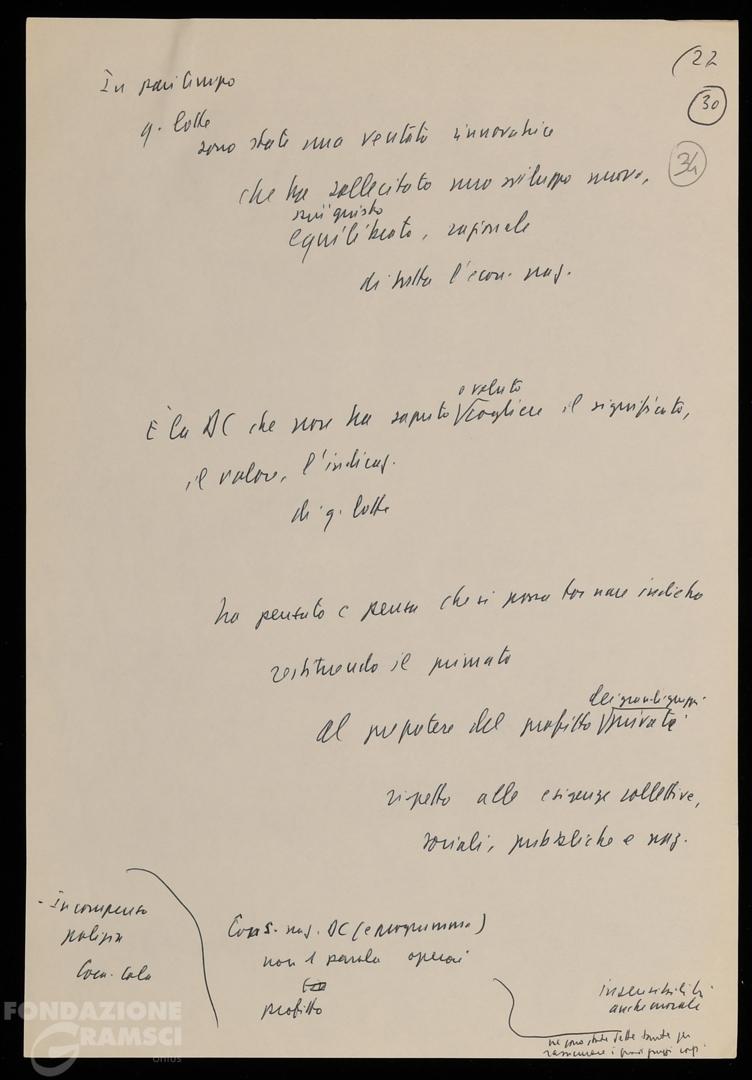 (22
30
34
In pari tempo
q. lotte
sono state una ventata innovatrice
che ha sollecitato uno sviluppo nuovo,
più giusto
equilibrato, razionale
di tutta l'econ. naz.
e voluto
È la DC che non ha saputo cogliere il significato,
il valore, l'indicaz.
di q. lotte
ha pensato e pensa che si possa tornare indietro
restituendo il primato
dei grandi gruppi
al prepotere del profitto privati
rispetto alle esigenze collettive,
sociali, pubbliche e naz.
- In compenso
polizia
Coca-Cola
Cons. naz. DC (e programma)
non 1 parola operai
profitto
insensibilità
anche morale
ne sono state dette tante per
rassicurare i grandi gruppi
FONDAZIONE
GRAMSCI
onlus